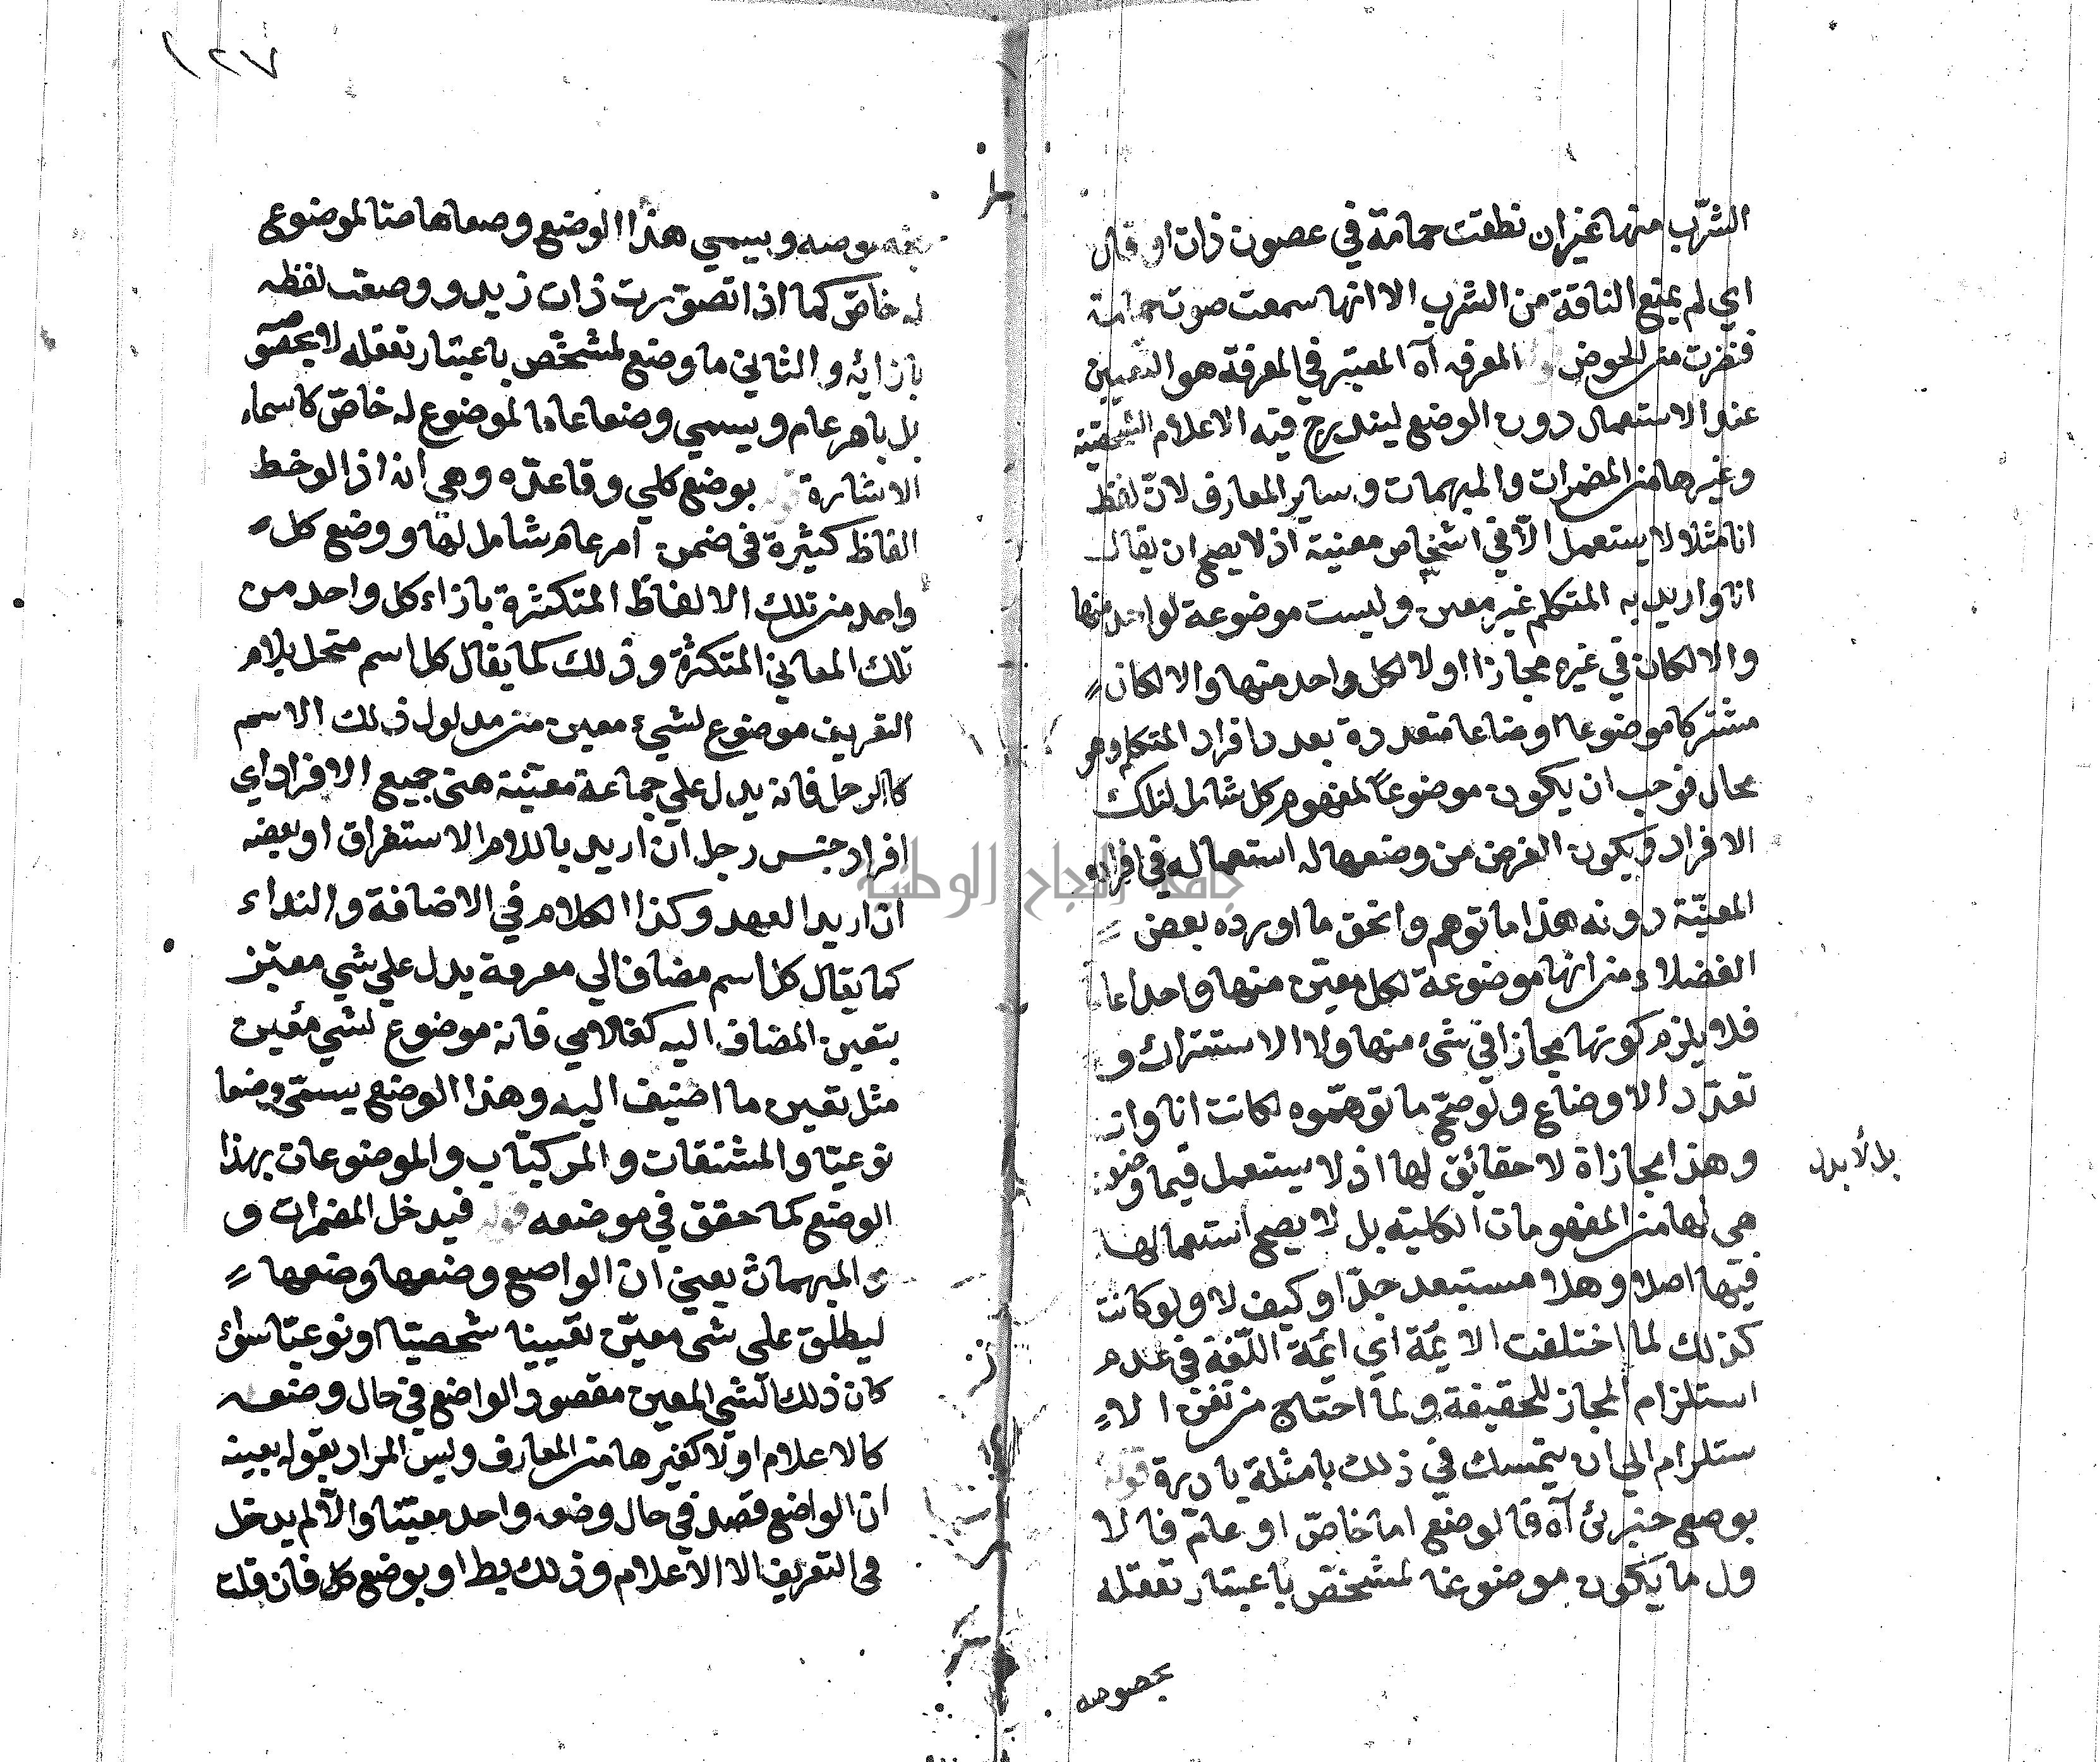 الشرب منها غيران نطقت حمامة في غصون ذات اوقال
اي لم يمنع الناقة من الشرب الا انها سمعت صوت حمامة
فنفرت من الحوض المعرفه آه المعتبر في المعرفة هو التعيين
عند الاستعمال دون الوضع ليندرج فيه الاعلام الشخصية
وغيرها من المضمرات والمبهمات وساير المعارف لان لفظ
انا مثلا لا يستعمل الا في اشخاص معنية اذ لا يصح ان يقال
انا واريد به المتكلم غير معين وليست موضوعة لواحد منها
والا لكان في غيره مجازا ولا لكل واحد منها والا لكان
مشتركا موضوعا اوضاعا متعددة بعدد افراد المتكلم وهو
محال فوجب ان يكون موضوعا لمفهوم كل شامل لتلك
الافراد ويكون الغرض من وضعها له استعماله في افراده
المعينة دونه هذا ما توهم والحق ما اورده بعض
الفضلاء من انها موضوعة لكل معين منها واحدا عاما
فلا يلزم كونها مجازا في شئ منها ولا الاشتراك و
تعدد الاوضاع ولو صح ما توهموه لكانت انا وانت
وهذا مجازاة لا حقائق لها اذ لا يستعمل فيما وضعت
هي لها من المفهومات الكلية بل لا يصح استعمالها
فيها اصلا وهذا مستبعد جدا وكيف لا ولو كانت
كذلك لما اختلفت الائمة اي ائمة اللغة في عدم
استلزام المجاز للحقيقة ولما احتاج من نفى الا
ستلزام الى ان يتمسك في ذلك بامثلة يادرة قوله
بوضع جزئ آه فالوضع اما خاص او عام فالا
ول ما يكون موضوعا لمشخص باعتبار تعقله
بخصوصه
بل لا بدل
١٢٧
بخصوصه ويسمي هذا الوضع وضعا خاصا لموضوع
له خاص كما اذا تصورت ذات زيد ووضعت لفظه
بازائه والثاني ما وضع لمشخص باعتبار تعقله لا بخصوصه
بل بامر عام ويسمي وضعا عاما لموضوع له خاص كاسماء
الاشارة قوله بوضع كلي وقاعدته وهي ان اذا لوخط
الفاظ كثيرة فى ضمن امر عام شامل لها ووضع كل
واحد من تلك الالفاظ المتكثرة بازاء كل واحد من
تلك المعاني المتكثرة وذلك كما يقال كل اسم متحل بلام
التعريف موضوع لشيء معين من مدلول ذلك الاسم
كالرجل فانه يدل علي جماعة معينة هنى جميع الافراد اي
افراد جنس رجل ان اريد باللام الاستغراق او بعضه
ان اريد العهد وكذا الكلام في الاضافة والنداء
كما يقال كل اسم مضاف الي معرفة يدل علي شي معين
بتعين المضاف اليه كغلامي فانه موضوع لشي معين
مثل تعين ما اضيف اليه وهذا الوضع يسمى وضعا
نوعيا والمشتقات والمركبات والموضوعات بهذا
الوضع كما حقق في موضعه قوله فيدخل المضمرات و
والمبهمات يعني ان الواضع وضعها وضعها
ليطلق على شى معين تعيينا شخصيا او نوعيا سواء
كان ذلك الشي المعين مقصود الواضع في حال وضعه
كالاعلام اولا كغيرها من المعارف وليس المراد بقوله بعينه
ان الواضع قصد في حال وضعه واحد معينا والا لم يدخل
فى التعريف الا الاعلام وذلك بط او بوضع كل فان قلت